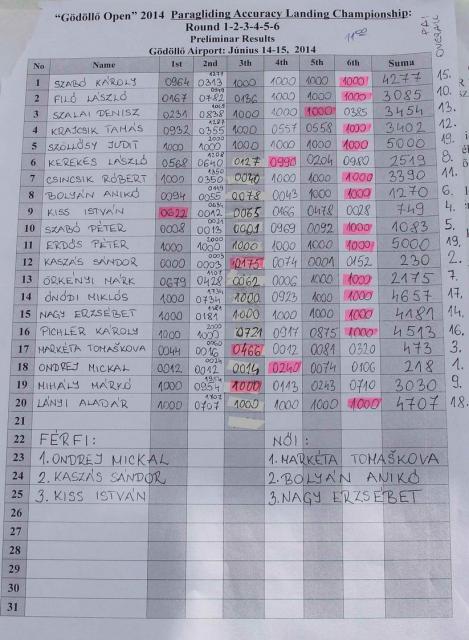 "Gödöllő Open" 2014 Paragliding Accuracy Landing Championship:
Round 1-2-3-4-5-6
Preliminar Results
Gödöllő Airport: Június 14-15, 2014
OVERALL
No Name 1st 2nd 3th 4th 5th 6th Suma
1 SZABÓ KÁROLY 0964 1277 0313 1000 1000 1000 1000 4277 15.
2 FILÓ LÁSZLÓ 0167 0949 0782 0136 1000 1000 1000 3085 10.
3 SZALAI DENISZ 0231 1069 0838 1000 1000 1000 0385 3454 13.
4 KRAJCSIK TAMÁS 0932 1287 0355 1000 0557 0558 1000 3402 12.
5 SZÖLLŐSY JUDIT 1000 1000 1000 1000 1000 1000 5000 19.
6 KEREKES LÁSZLÓ 0568 1208 0640 0127 0990 0204 0980 2519 8.
7 CSINCSIK RÓBERT 1000 1350 0350 0040 1000 1000 1000 3390 11.
8 BOLYÁN ANIKÓ 0094 0149 0055 0078 0043 1000 1000 1270 6.
9 KISS ISTVÁN 0622 0634 0012 0065 0166 0478 0028 749 4.
10 SZABÓ PÉTER 0008 0021 0013 0001 0969 0092 1000 1083 5.
11 ERDŐS PÉTER 1000 2000 1000 1000 1000 1000 1000 5000 19.
12 KASZÁS SÁNDOR 0000 0003 0003 0175 0074 0001 0152 230 2.
13 ÖRKÉNYI MÁRK 0679 1107 0428 0062 0006 1000 1000 2175 7.
14 ÓNÓDI MIKLÓS 1000 1734 0734 1000 0923 1000 1000 4657 17.
15 NAGY ERZSÉBET 1000 1181 0181 1000 1000 1000 1000 4181 14.
16 PICHLER KÁROLY 1000 2000 1000 0721 0917 0875 1000 4513 16.
17 MARKÉTA TOMAŠKOVA 0044 0060 0016 0466 0012 0081 0320 473 3.
18 ONDREJ MICKAL 0012 0024 0012 0014 0240 0074 0106 218 1.
19 MIHÁLY MÁRKÓ 1000 1954 0954 1000 0113 0243 0710 3030 9.
20 LÁNYI ALADÁR 1000 1707 0707 1000 1000 1000 1000 4707 18.
21
22 FÉRFI: NŐI:
23 1. ONDREJ MICKAL 1. MARKÉTA TOMAŠKOVA
24 2. KASZÁS SÁNDOR 2. BOLYÁN ANIKÓ
25 3. KISS ISTVÁN 3. NAGY ERZSÉBET
26
27
28
29
30
31